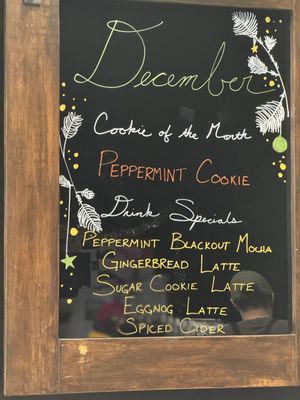 December
Cookie of the Month
PEPPERMINT COOKIE
Drink Specials
PEPPERMINT BLACKOUT MOCHA
GINGERBREAD LATTE
SUGAR COOKIE LATTE
EGGNOG LATTE
SPICED CIDER